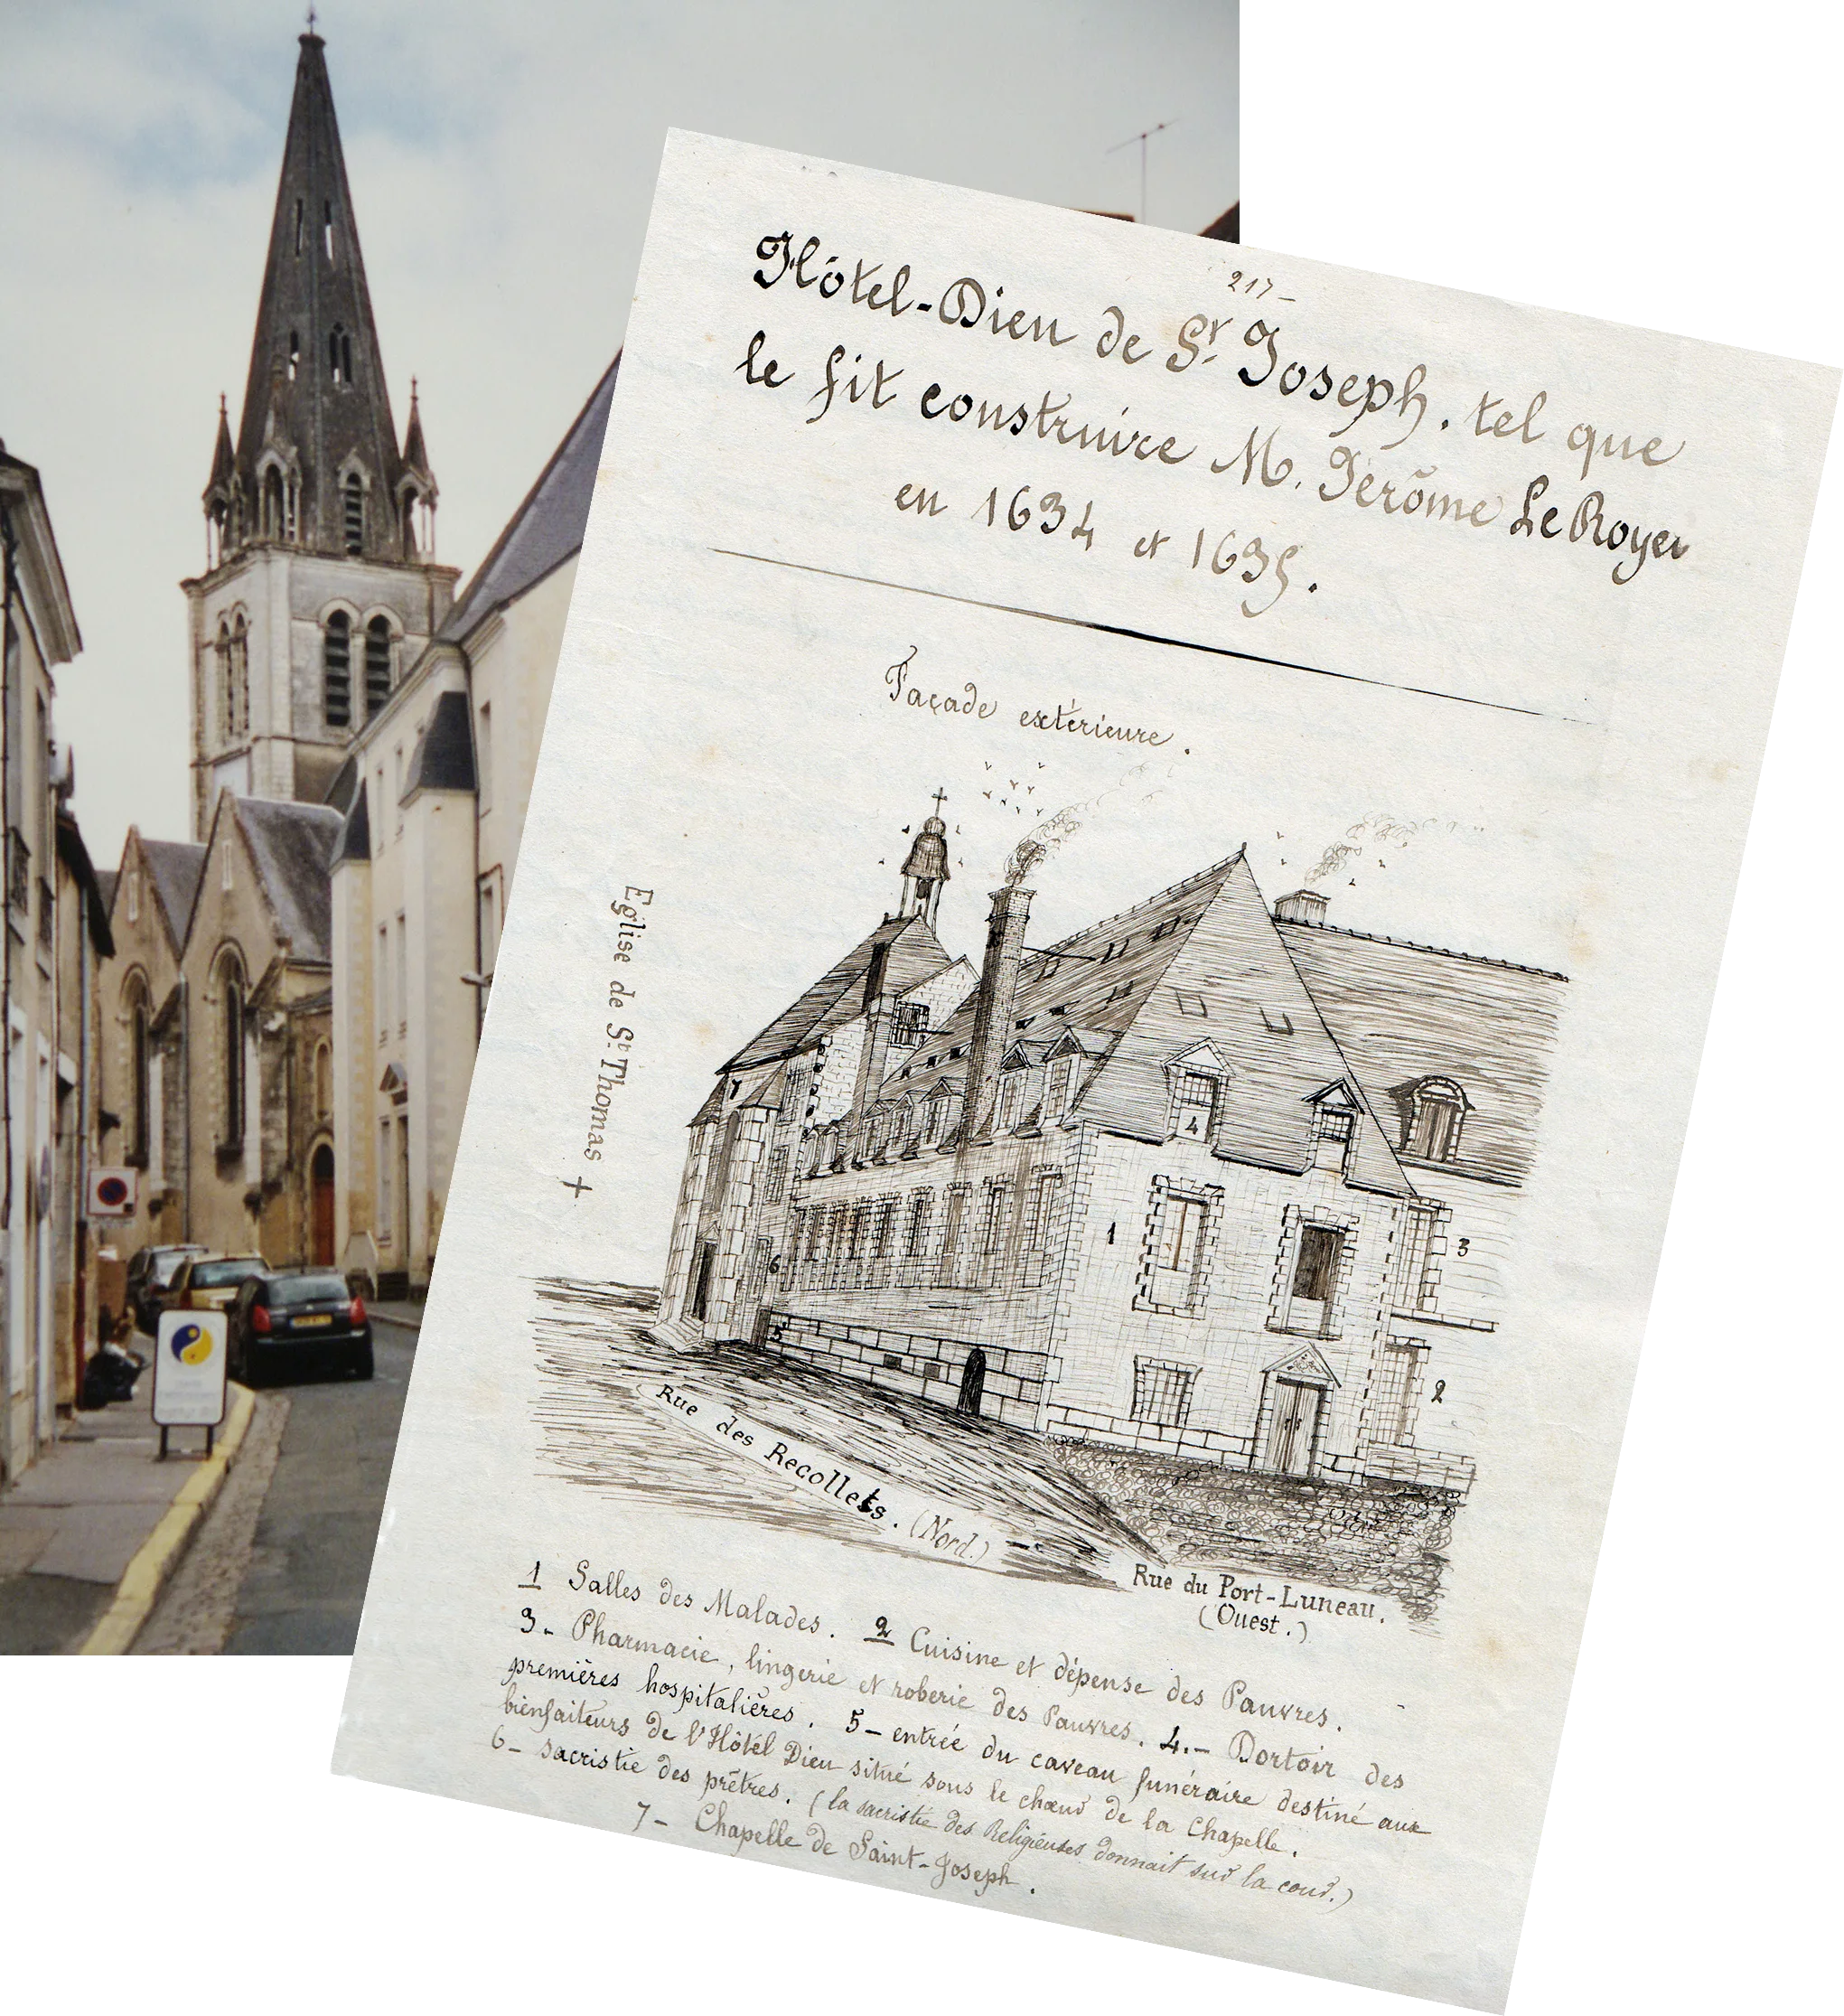 217-
Hôtel-Dieu de St Joseph. tel que
le fit construire M. Jérôme Le Royer
en 1634 et 1635.
Façade extérieure.
Eglise de St. Thomas +
7
4
1
3
6
5
2
Rue des Recollets. (Nord.)
Rue du Port-Luneau.
(Ouest.)
1 Salles des Malades. 2 Cuisine et dépense des Pauvres.
3- Pharmacie, lingerie et roberie des Pauvres. 4.- Dortoir des
premières hospitalières. 5- entrée du caveau funéraire destiné aux
bienfaiteurs de l'Hôtel Dieu situé sous le chœur de la Chapelle.
6- sacristie des prêtres. (la sacristie des Religieuses donnait sur la cour.)
7- Chapelle de Saint-Joseph.